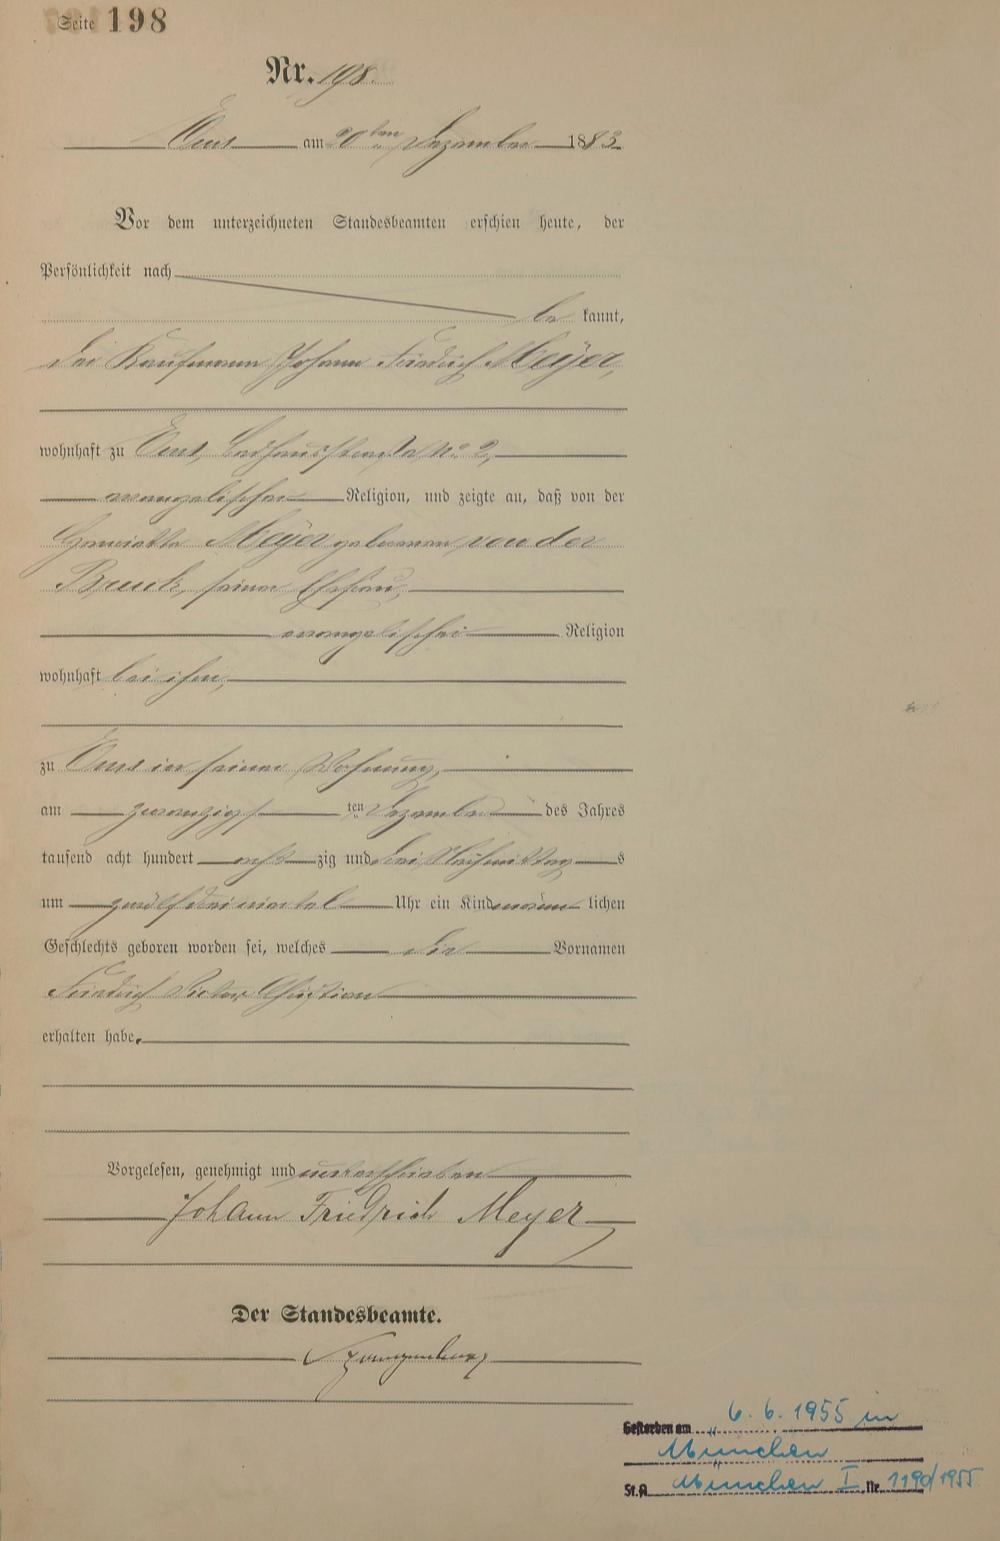 Seite 198
Nr. 198.
Ems am 20ten Dezember 1883
Vor dem unterzeichneten Standesbeamten erschien heute, der
Persönlichkeit nach
be kannt,
der Kaufmann Johann Friedrich Meÿer,
wohnhaft zu Ems, No. 2,
evangelischer Religion, und zeigte an, daß von der
Henriette Meÿer geborenen von der
Bruck, seiner Ehefrau,
evangelischer Religion
wohnhaft bei ihm,
zu Ems in seiner Wohnung,
am zwanzigsten Dezember des Jahres
tausend acht hundert acht zig und drei Nachmittags
um zwölf dreiviertel Uhr ein Kind männ lichen
Geschlechts geboren worden sei, welches die Vornamen
Friedrich Victor Christian
erhalten habe.
Vorgelesen, genehmigt und unterschrieben
Johann Friedrich Meyer
Der Standesbeamte.
Gestorben am 6.6.1955 in
München
St.A. München I Nr. 1190/1955